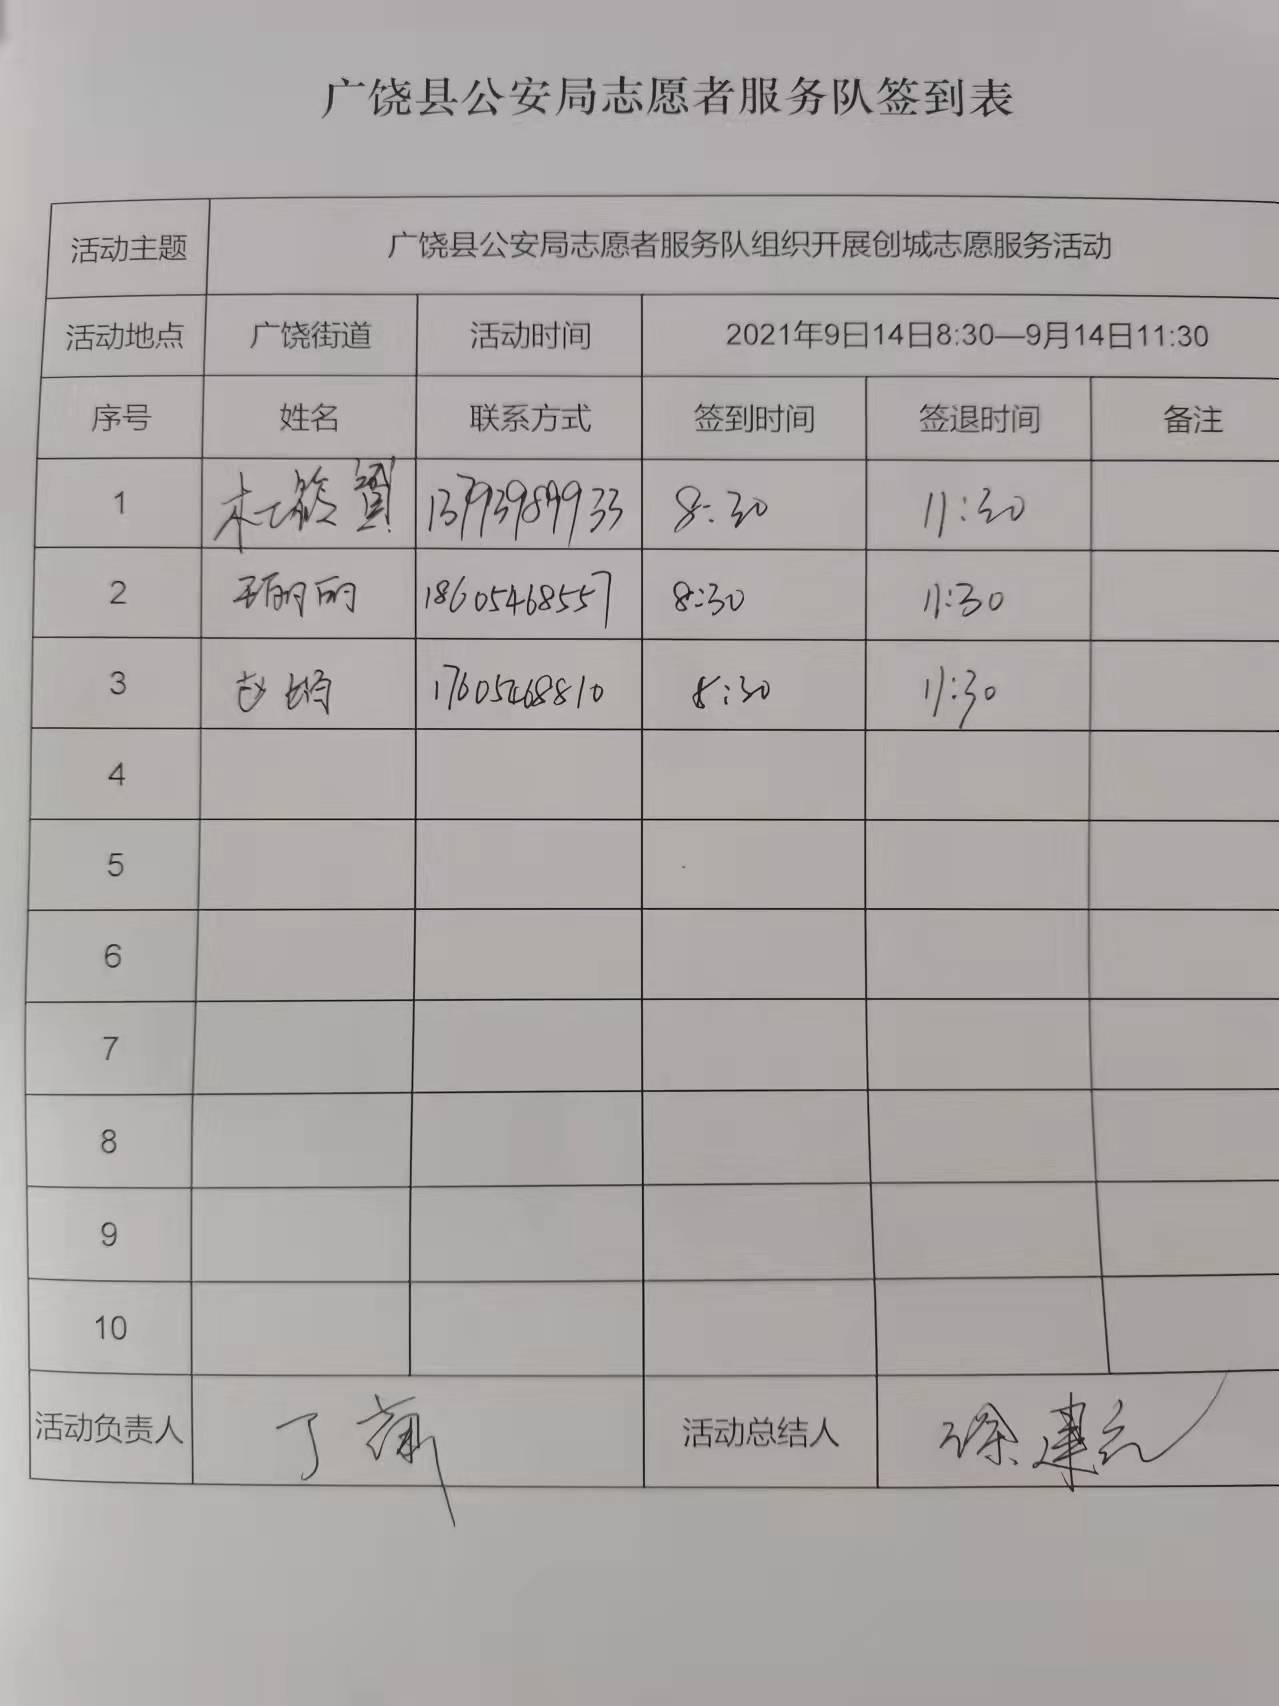 广饶县公安局志愿者服务队签到表
活动主题 广饶县公安局志愿者服务队组织开展创城志愿服务活动
活动地点 广饶街道 活动时间 2021年9日14日8:30—9月14日11:30
序号 姓名 联系方式 签到时间 签退时间 备注
1 8:30 11:30
2 18605468557 8:30 11:30
3 17605468810 8:30 11:30
4
5
6
7
8
9
10
活动负责人 丁 活动总结人 徐建